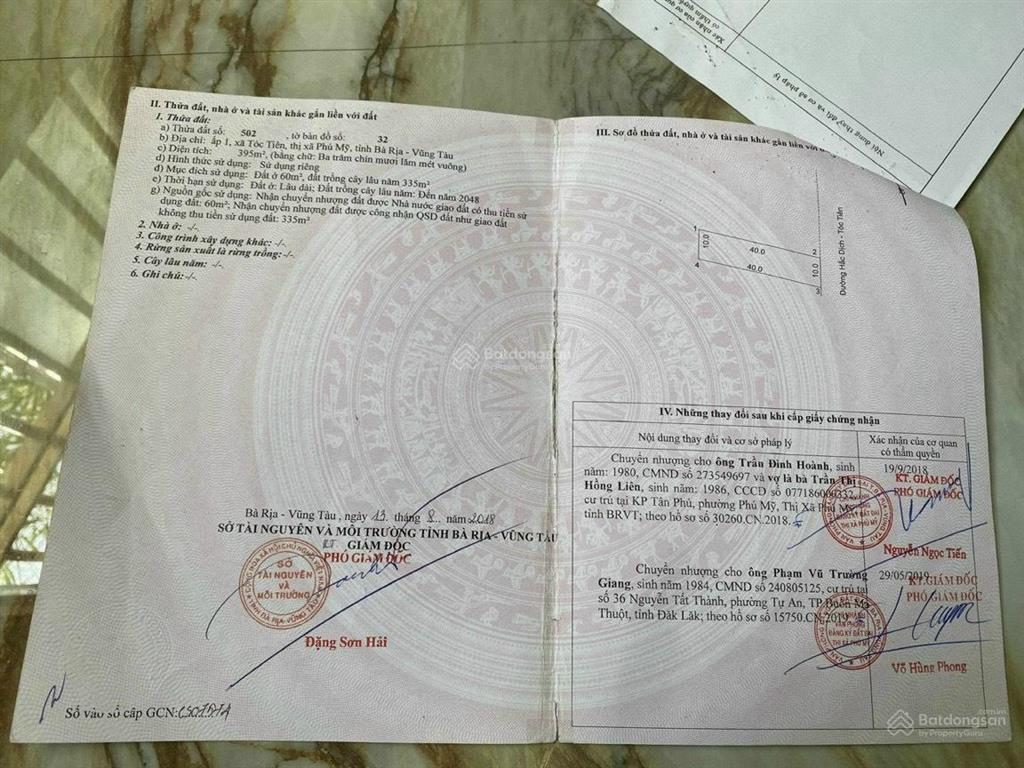 Xác nhận của cơ quan
có thẩm quyền
Nội dung thay đổi và cơ sở pháp lý
II. Thửa đất, nhà ở và tài sản khác gắn liền với đất
1. Thửa đất:
a) Thửa đất số: 502 , tờ bản đồ số: 32
b) Địa chỉ: ấp 1, xã Tóc Tiên, thị xã Phú Mỹ, tỉnh Bà Rịa - Vũng Tàu
c) Diện tích: 395m², (bằng chữ: Ba trăm chín mươi lăm mét vuông)
d) Hình thức sử dụng: Sử dụng riêng
đ) Mục đích sử dụng: Đất ở 60m², đất trồng cây lâu năm 335m²
e) Thời hạn sử dụng: Đất ở: Lâu dài; Đất trồng cây lâu năm: Đến năm 2048
g) Nguồn gốc sử dụng: Nhận chuyển nhượng đất được Nhà nước giao đất có thu tiền sử
dụng đất: 60m²; Nhận chuyển nhượng đất được công nhận QSD đất như giao đất
không thu tiền sử dụng đất: 335m²
2. Nhà ở: -/-
3. Công trình xây dựng khác: -/-
4. Rừng sản xuất là rừng trồng: -/-
5. Cây lâu năm: -/-
6. Ghi chú: -/-
Bà Rịa - Vũng Tàu, ngày 13 tháng 8 năm 2018
SỞ TÀI NGUYÊN VÀ MÔI TRƯỜNG TỈNH BÀ RỊA - VŨNG TÀU
KT GIÁM ĐỐC
PHÓ GIÁM ĐỐC
SỞ
TÀI NGUYÊN
VÀ
MÔI TRƯỜNG
Đặng Sơn Hải
Số vào sổ cấp GCN:
III. Sơ đồ thửa đất, nhà ở và tài sản khác gắn liền với
1
10.0
40.0
2
4
40.0
10.0
3
Đường Hắc Dịch - Tóc Tiên
IV. Những thay đổi sau khi cấp giấy chứng nhận
Nội dung thay đổi và cơ sở pháp lý
Xác nhận của cơ quan
có thẩm quyền
Chuyển nhượng cho ông Trần Đình Hoành, sinh
năm: 1980, CMND số 273549697 và vợ là bà Trần Thị
Hồng Liên, sinh năm: 1986, CCCD số 077186000332,
cư trú tại KP Tân Phú, phường Phú Mỹ, Thị Xã Phú Mỹ,
tỉnh BRVT; theo hồ sơ số 30260.CN.2018.
19/9/2018
KT. GIÁM ĐỐC
PHÓ GIÁM ĐỐC
Nguyễn Ngọc Tiến
Chuyển nhượng cho ông Phạm Vũ Trường
Giang, sinh năm 1984, CMND số 240805125, cư trú tại
số 36 Nguyễn Tất Thành, phường Tự An, TP Buôn Ma
Thuột, tỉnh Đăk Lăk; theo hồ sơ số 15750.CN.2019
29/05/2019
KT GIÁM ĐỐC
PHÓ GIÁM ĐỐC
VĂN PHÒNG
ĐĂNG KÝ ĐẤT ĐAI
THỊ XÃ PHÚ MỸ
Võ Hùng Phong
Batdongsan
Batdongsan
.com.vn
by PropertyGuru